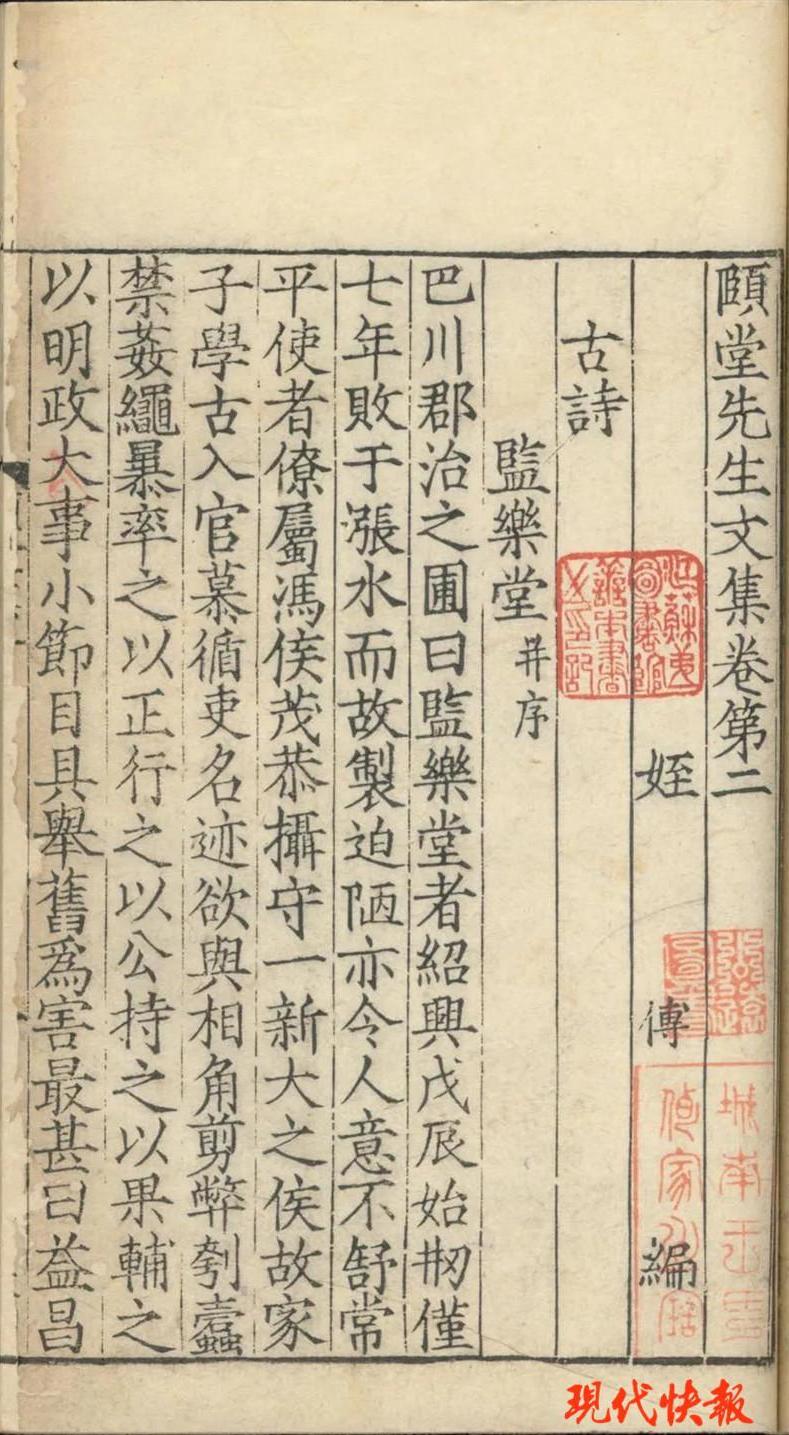 頤堂先生文集卷第二
姪 傅 編
古詩
監樂堂 并序
巴川郡治之圃曰監樂堂者紹興戊辰始刱僅
七年敗于漲水而故製迫陋亦令人意不舒常
平使者僚屬馮侯茂恭攝守一新大之侯故家
子學古入官慕循吏名迹欲與相角剪弊刳蠹
禁姦繩暴率之以正行之以公持之以果輔之
以明政大事小節目具舉舊爲害最甚曰益昌
江蘇
圖書館
善本書
之印記
城南
現代快報